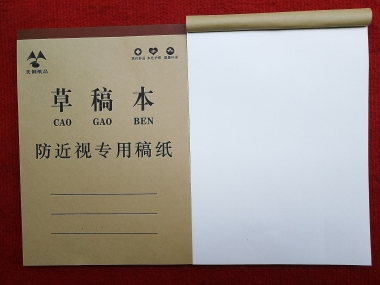 草稿本
CAO GAO BEN
防近视专用稿纸